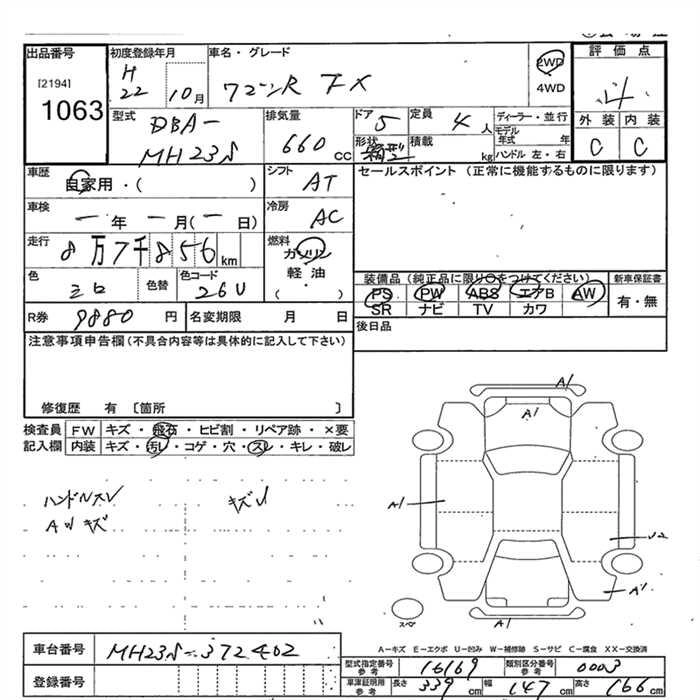 出品番号
[2194]
1063
初度登録年月
H
22 10月
車名・グレード
ワゴンR FX
2WD
4WD
評価点
4
外装 内装
C C
型式
DBA-
MH23S
排気量
660 cc
ドア 5
形状 箱型
定員 4人
積載 kg
ディーラー・並行
モデル年式 年
ハンドル 左・右
車歴
自家用・( )
シフト
AT
セールスポイント (正常に機能するものに限ります)
車検
一年 一月(一日)
冷房
AC
走行
8万7千856km
燃料
ガソリン
軽・油
( )
色
色替
色コード
26U
装備品 (純正品に限り○をつけてください)
PS PW ABS エアB AW
SR ナビ TV カワ
新車保証書
有・無
R券 9880円
名変期限 月 日
後日品
注意事項申告欄 (不具合内容等は具体的に記入して下さい)
修復歴 有 〔箇所 〕
検査員記入欄
FW キズ・飛石・ヒビ割・リペア跡・×要
内装 キズ・汚レ・コゲ・穴・スレ・キレ・破レ
ハンドルスレ
キズ
A1
A1
A1
A1
A1
スペ
A-キズ E-エクボ U-凹み W-補修跡 S-サビ C-腐食 XX-交換済
車台番号 MH23S-372402
登録番号
型式指定番号 参考 16169
類別区分番号 参考 0003
車庫証明用 参考 長さ 339cm 幅 147 高さ 166cm